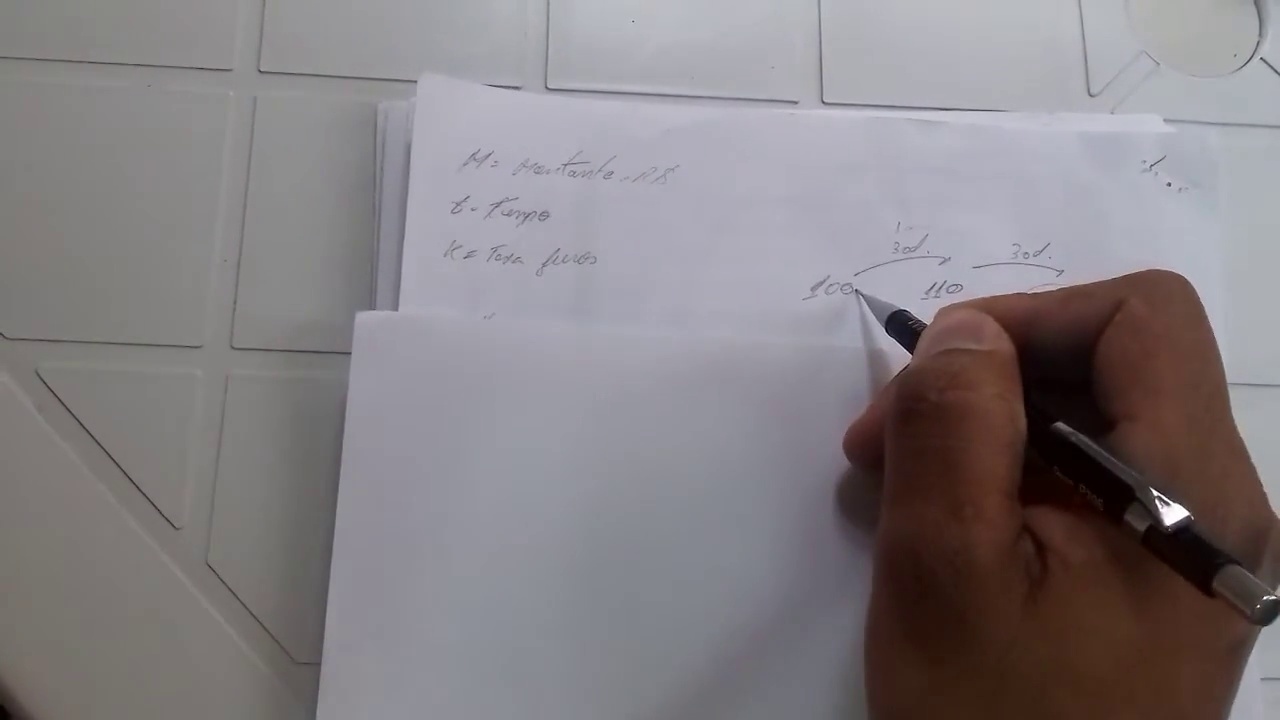 M = Montante - R$
t - Tempo
K = Taxa juros
30d. 30d.
100 110